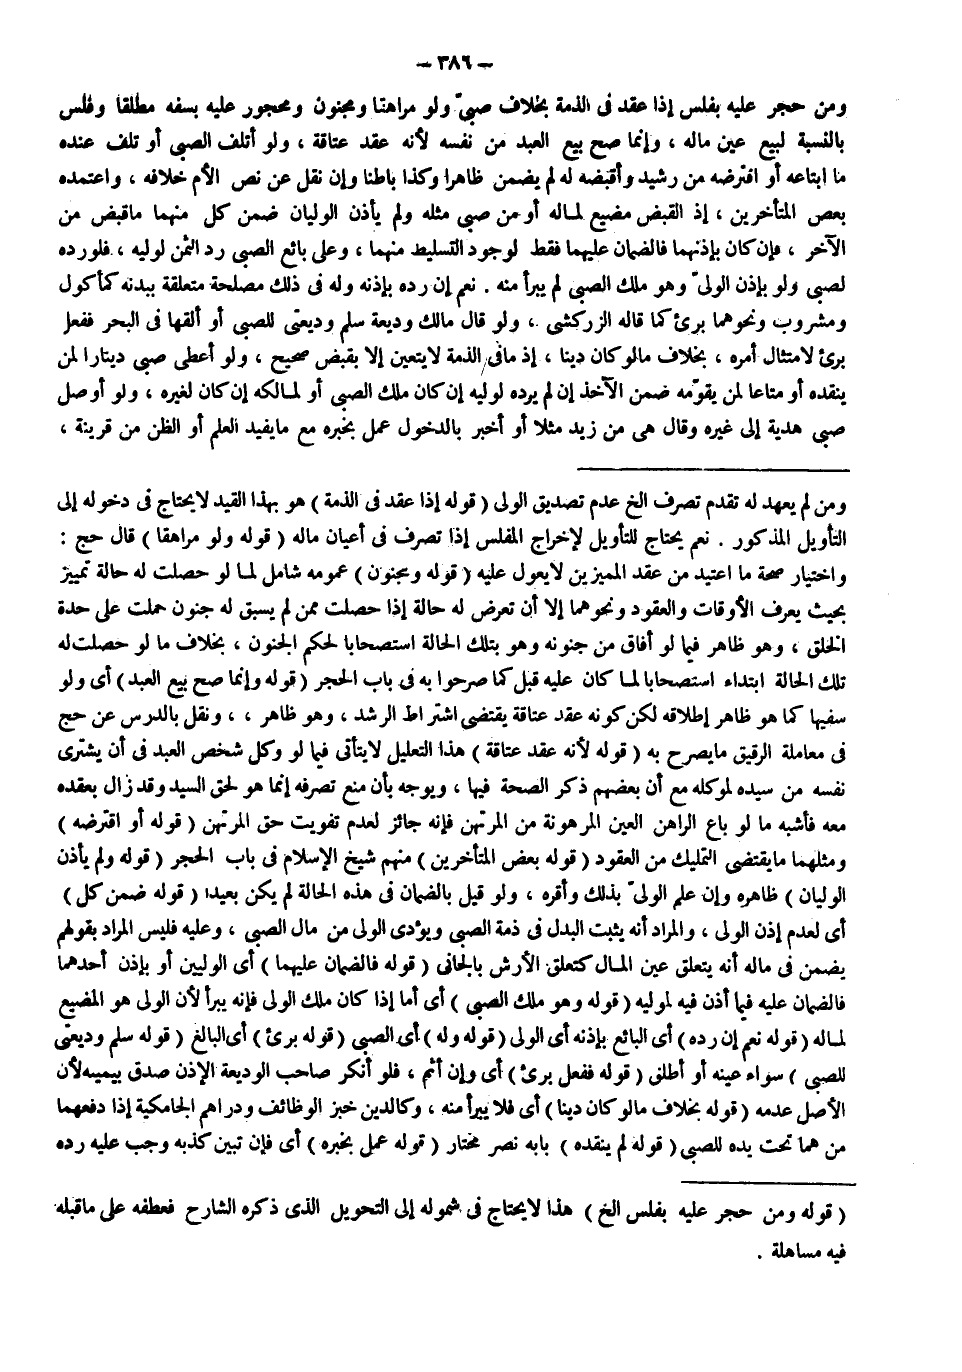 – ٣٨٦ –
ومن حجر عليه بفلس إذا عقد فى الذمة بخلاف صبىّ ولو مراهقا ومجنون ومحجور عليه بسفه مطلقا وفلس
بالنسبة لبيع عين ماله ، وإنما صح بيع العبد من نفسه لأنه عقد عتاقة ، ولو أتلف الصبى أو تلف عنده
ما ابتاعه أو اقترضه من رشيد وأقبضه له لم يضمن ظاهرا وكذا باطنا وإن نقل عن نص الأم خلافه ، واعتمده
بعض المتأخرين ، إذ القبض مضيع لماله أو من صبى مثله ولم يأذن الوليان ضمن كل منهما ماقبض من
الآخر ، فإن كان بإذنهما فالضمان عليهما فقط لوجود التسليط منهما ، وعلى بائع الصبى رد الثمن لوليه ، فلو رده
لصبى ولو بإذن الولىّ وهو ملك الصبى لم يبرأ منه . نعم إن رده بإذنه وله فى ذلك مصلحة متعلقة ببدنه كمأكول
ومشروب ونحوهما برئ كما قاله الزركشى ، ولو قال مالك وديعة سلم وديعتى للصبى أو ألقها فى البحر ففعل
برئ لامتثال أمره ، بخلاف مالو كان دينا ، إذ مافى الذمة لايتعين إلا بقبض صحيح ، ولو أعطى صبى دينارا لمن
ينقده أو متاعا لمن يقوّمه ضمن الآخذ إن لم يرده لوليه إن كان ملك الصبى أو لمالكه إن كان لغيره ، ولو أوصل
صبى هدية إلى غيره وقال هى من زيد مثلا أو أخبر بالدخول عمل بخبره مع مايفيد العلم أو الظن من قرينة ،
ومن لم يعهد له تقدم تصرف الخ عدم تصديق الولى ( قوله إذا عقد فى الذمة ) هو بهذا القيد لايحتاج فى دخوله إلى
التأويل المذكور . نعم يحتاج للتأويل لإخراج المفلس إذا تصرف فى أعيان ماله ( قوله ولو مراهقا ) قال حج :
واختيار صحة ما اعتيد من عقد المميزين لايعول عليه ( قوله ومجنون ) عمومه شامل لما لو حصلت له حالة تمييز
بحيث يعرف الأوقات والعقود ونحوهما إلا أن تعرض له حالة إذا حصلت ممن لم يسبق له جنون حملت على حدة
الخلق ، وهو ظاهر فيما لو أفاق من جنونه وهو بتلك الحالة استصحابا لحكم الجنون ، بخلاف ما لو حصلت له
تلك الحالة ابتداء استصحابا لما كان عليه قبل كما صرحوا به فى باب الحجر ( قوله وإنما صح بيع العبد ) أى ولو
سفيها كما هو ظاهر إطلاقه لكن كونه عقد عتاقة يقتضى اشتراط الرشد ، وهو ظاهر ، ، ونقل بالدرس عن حج
فى معاملة الرقيق مايصرح به ( قوله لأنه عقد عتاقة ) هذا التعليل لايتأتى فيما لو وكل شخص العبد فى أن يشترى
نفسه من سيده لموكله مع أن بعضهم ذكر الصحة فيها ، ويوجه بأن منع تصرفه إنما هو لحق السيد وقد زال بعقده
معه فأشبه ما لو باع الراهن العين المرهونة من المرتهن فإنه جائز لعدم تفويت حق المرتهن ( قوله أو اقترضه )
ومثلهما مايقتضى التمليك من العقود ( قوله بعض المتأخرين ) منهم شيخ الإسلام فى باب الحجر ( قوله ولم يأذن
الوليان ) ظاهره وإن علم الولىّ بذلك وأقره ، ولو قيل بالضمان فى هذه الحالة لم يكن بعيدا ( قوله ضمن كل )
أى لعدم إذن الولى ، والمراد أنه يثبت البدل فى ذمة الصبى ويؤدى الولى من مال الصبى ، وعليه فليس المراد بقولهم
يضمن فى ماله أنه يتعلق عين المال كتعلق الأرش بالجانى ( قوله فالضمان عليهما ) أى الوليين أو بإذن أحدهما
فالضمان عليه فيما أذن فيه لموليه ( قوله وهو ملك الصبى ) أى أما إذا كان ملك الولى فإنه يبرأ لأن الولى هو المضيع
لماله ( قوله نعم إن رده ) أى البائع بإذنه أى الولى ( قوله وله ) أى الصبى ( قوله برئ ) أى البالغ ( قوله سلم وديعتى
للصبى ) سواء عينه أو أطلق ( قوله ففعل برئ ) أى وإن أثم ، فلو أنكر صاحب الوديعة الإذن صدق بيمينه لأن
الأصل عدمه ( قوله بخلاف مالو كان دينا ) أى فلا يبرأ منه ، وكالدين خبز الوظائف ودراهم الجامكية إذا دفعهما
من هما تحت يده للصبى ( قوله لم ينقده ) بابه نصر مختار ( قوله عمل بخبره ) أى فإن تبين كذبه وجب عليه رده
( قوله ومن حجر عليه بفلس الخ ) هذا لايحتاج فى شموله إلى التحويل الذى ذكره الشارح فعطفه على ماقبله
فيه مساهلة .